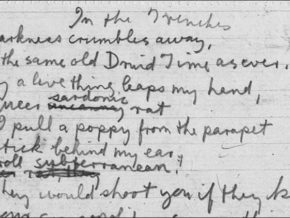 In the Trenches
arkness crumbles away,
the same old Druid Time as ever.
y a live thing leaps my hand,
sardonic
queer uncanny rat
I pull a poppy from the parapet
stick behind my ear,
subterranean,
hey would shoot you if they k